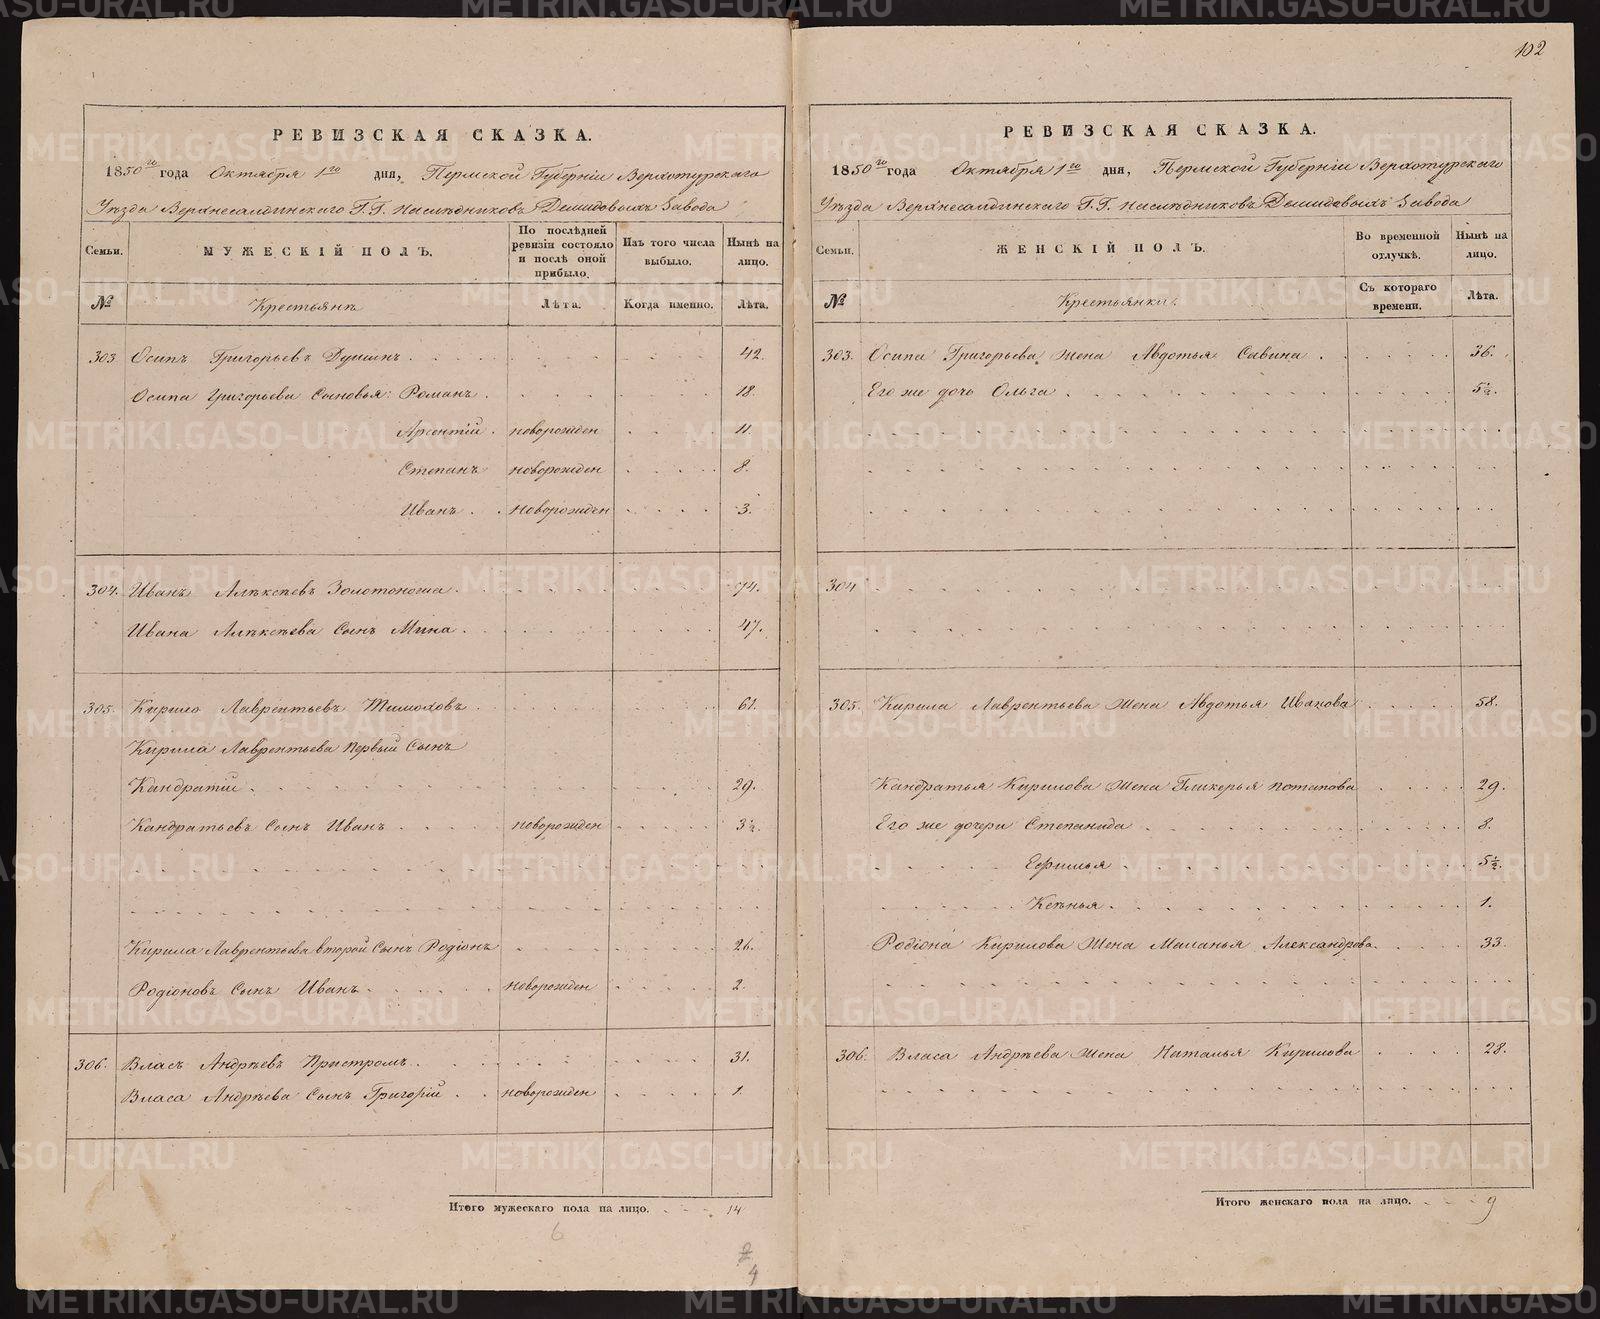 РЕВИЗСКАЯ СКАЗКА.
1850го года Октября 1го дня, Пермской Губернiи Верхотурскаго
Уѣзда Верхнесалдинскаго Г.Г. Наслѣдниковъ Демидовыхъ Завода
Семьи. МУЖЕСКIЙ ПОЛЪ. По послѣдней ревизiи состояло и послѣ оной прибыло. Изъ того числа выбыло. Нынѣ на лицо.
№ Крестьянъ Лѣта. Когда именно. Лѣта.
303 Осипъ Григорьевъ 42.
Осипа Григорьева Сыновья: Романъ 18.
Арсентiй новорожден 11.
Степанъ новорожден 8.
Иванъ новорожден 3.
304. Иванъ Алѣксѣевъ Золотоноша 74.
Ивана Алѣксѣева Сынъ Мина 47.
305. Кирило Лаврентьевъ Тимоховъ 61.
Кирила Лаврентьева первый Сынъ
Кандратiи 29.
Кандратьевъ Сынъ Иванъ новорожден 3½.
Кирила Лаврентьева второй Сынъ Родiонъ 26.
Родiоновъ Сынъ Иванъ новорожден 2.
306. Власъ Андрѣевъ Пристромъ 31.
Власа Андрѣева Сынъ Григорiй новорожден 1.
Итого мужескаго пола на лицо. 14
6
2
4
102
РЕВИЗСКАЯ СКАЗКА.
1850го года Октября 1го дня, Пермской Губернiи Верхотурскаго
Уѣзда Верхнесалдинскаго Г.Г. Наслѣдниковъ Демидовыхъ Завода
Семьи. ЖЕНСКIЙ ПОЛЪ. Во временной отлучкѣ. Нынѣ на лицо.
№ Крестьянки. Съ котораго времени. Лѣта.
303. Осипа Григорьева жена Авдотья Савина 36.
Его же дочь Ольга 5½.
304
305. Кирила Лаврентьева жена Авдотья Иванова 58.
Кандратья Кирилова жена Гликерья Потапова 29.
Его же дочери Степанида 8.
Ефимья 5½.
Ксѣнья 1.
Родiона Кирилова жена Маланья Александрова 33.
306. Власа Андрѣева жена Наталья Кирилова 28.
Итого женскаго пола на лицо. 9
METRIKI.GASO-URAL.RU